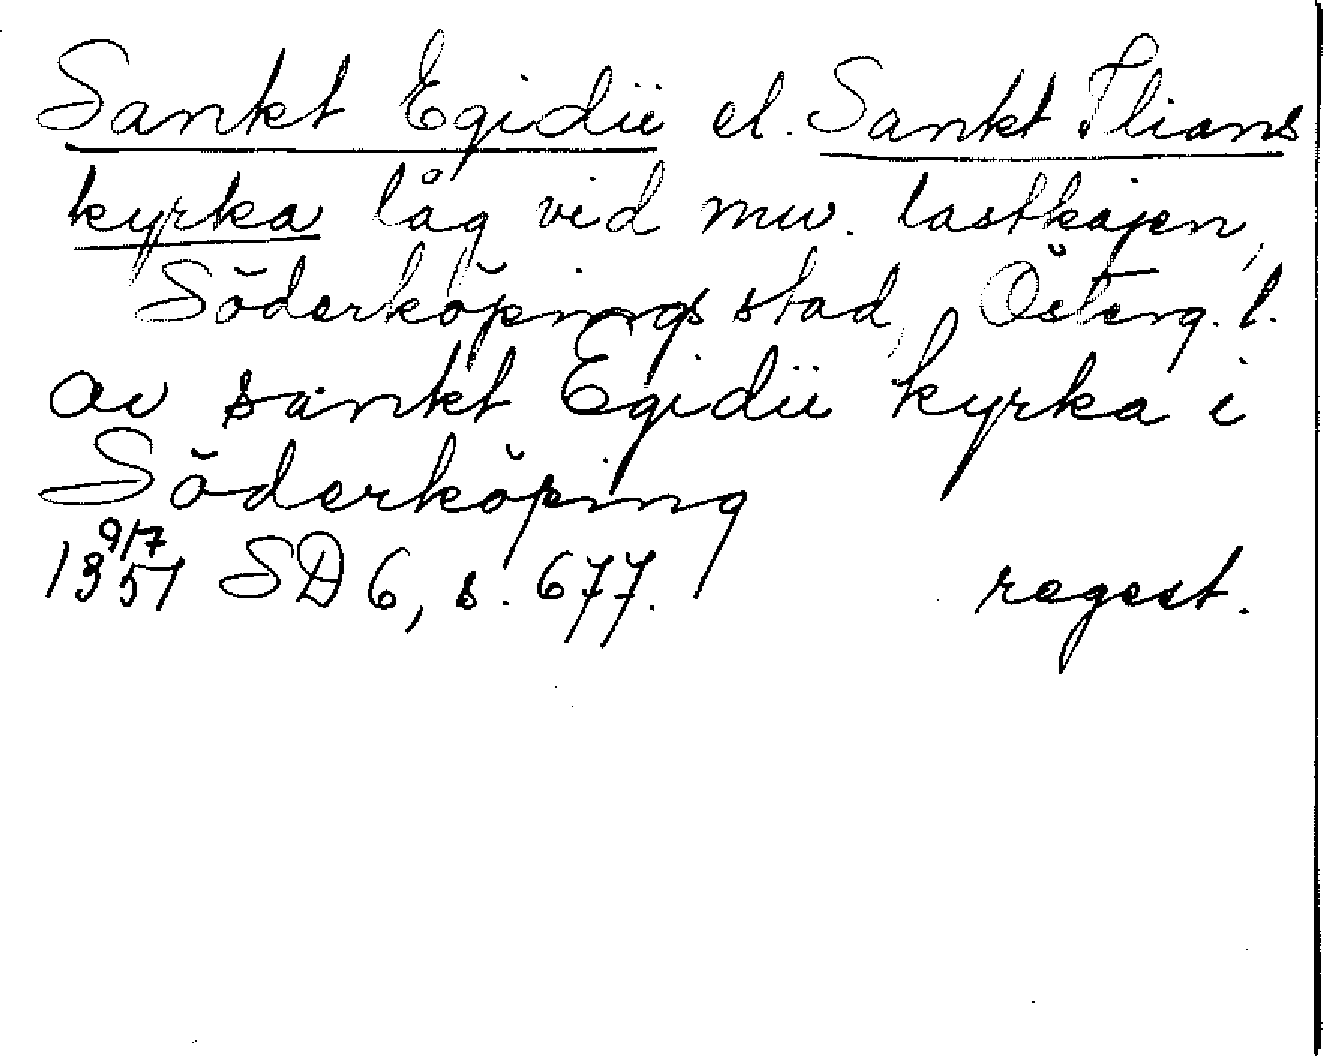 Sankt Egidii el. Sankt Ilians
kyrka låg vid nuv. lastkajen,
Söderköpings stad, Österg. l.
av sankt Egidii kyrka i
Söderköping
1351 9/7 SD 6, s. 677. regest.